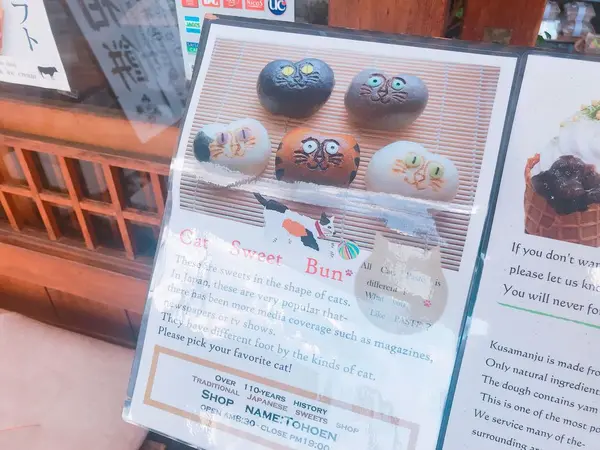 フト
UC
Cat Sweet Bun
These are sweets in the shape of cats.
In Japan, these are very popular that-
there has been more media coverage such as magazines,
newspapers or tv shows.
They have different foot by the kinds of cat.
Please pick your favorite cat!
All Cat
different
What
Like
OVER 110-YEARS HISTORY
TRADITIONAL JAPANESE SWEETS SHOP
SHOP NAME:TOHOEN
OPEN AM8:30-CLOSE PM19:00
If you don't wan
please let us kno
You will never fo
Kusamanju is made fro
Only natural ingredient
The dough contains yam
This is one of the most po
We service many of the
surrounding ar